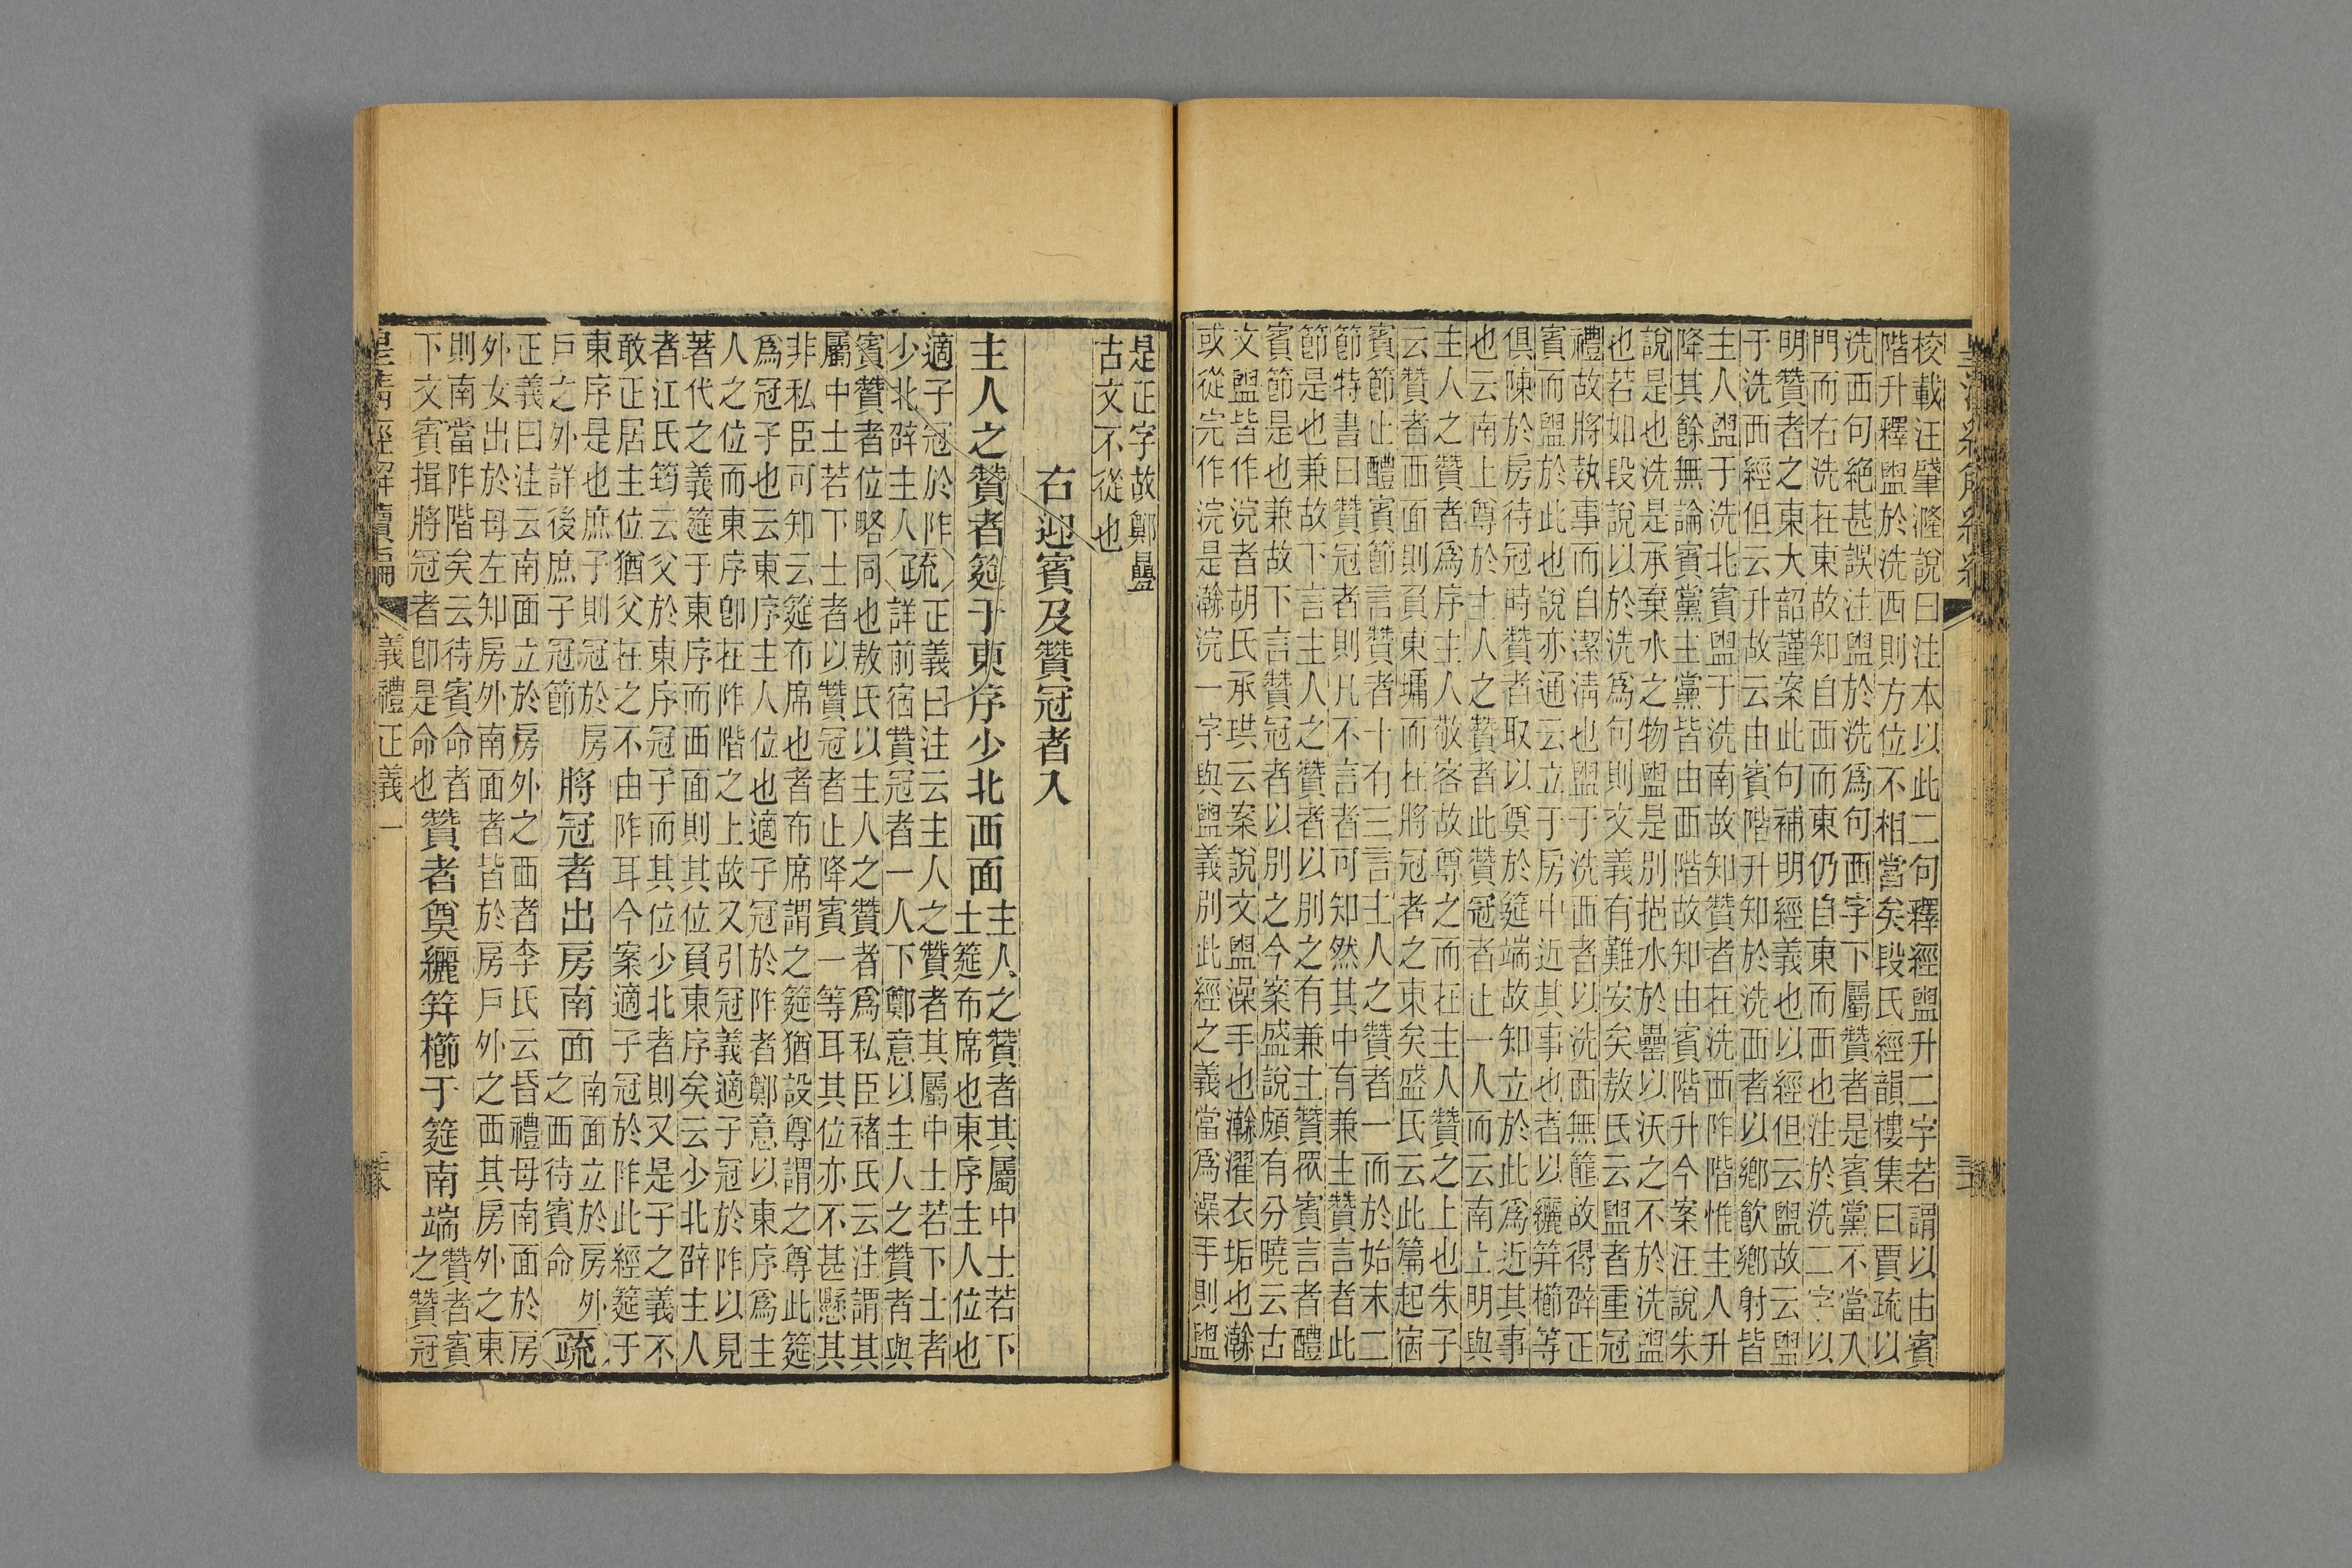 校載汪肇漋說曰注本以此二句釋經盥升二字若謂以由賓
階升釋盥於洗西則方位不相當矣段氏經韻樓集曰賈疏以
洗西句絕甚誤注盥於洗爲句西字下屬贊者是賓黨不當入
門而右洗在東故知自西而東仍自東而西也注於洗二字以
明贊者之東大韶謹案此句補明經義也以經但云盥故云盥
于洗西經但云升故云由賓階升知於洗西者以鄉飲鄉射皆
主人盥于洗北賓盥于洗南故知贊者在洗西阼階惟主人升
降其餘無論賓黨主黨皆由西階故知由賓階升今案汪說朱
說是也洗是承棄水之物盥是別挹水於罍以沃之不於洗盥
也若如段說以於洗爲句則文義有難安矣敖氏云盥者重冠
禮故將執事而自潔清也盥于洗西者以洗西無篚故得辟正
賓而盥於此也說亦通云立于房中近其事也者以纚笄櫛等
俱陳於房待冠時贊者取以奠於筵端故知立於此爲近其事
也云南上尊於主人之贊者此贊冠者止一人而云南上明與
主人之贊者爲序主人敬客故尊之而在主人贊之上也朱子
云贊者西面則負東墉而在將冠者之東矣盛氏云此篇起宿
賓節止醴賓節言贊者十有三言主人之贊者一而於始末二
節特書曰贊冠者則凡不言者可知然其中有兼主贊言者此
節是也兼故下言主人之贊者以別之有兼主贊眾賓言者醴
賓節是也兼故下言贊冠者以別之今案盛說頗有分曉云古
文盥皆作浣者胡氏承珙云案說文盥澡手也瀚濯衣垢也瀚
或從完作浣是瀚浣一字與盥義別此經之義當爲澡手則盥
是正字故鄭疊
古文不從也
右迎賓及贊冠者入
主人之贊者筵于東序少北西面主人之贊者其屬中士若下
士筵布席也東序主人位也
適子冠於阼疏正義曰注云主人之贊者其屬中士若下士者
少北辟主人詳前宿贊冠者一人下鄭意以主人之贊者與
賓贊者位略同也敖氏以主人之贊者爲私臣褚氏云注謂其
屬中士若下士者以贊冠者止降賓一等耳其位亦不甚懸其
非私臣可知云筵布席也者布席謂之筵猶設尊謂之尊此筵
爲冠子也云東序主人位也適子冠於阼者鄭意以東序爲主
人之位而東序卽在阼階之上故又引冠義適子冠於阼以見
著代之義筵于東序而西面則其位負東序矣云少北辟主人
者江氏筠云父於東序冠子而其位少北者則又是子之義不
敢正居主位猶父在之不由阼耳今案適子冠於阼此經筵于
東序是也庶子則冠於房
戶之外詳後庶子冠節將冠者出房南面南面立於房外
之西待賓命疏
正義曰注云南面立於房外之西者李氏云昏禮母南面於房
外女出於母左知房外南面者皆於房戶外之西其房外之東
則南當阼階矣云待賓命者
下文賓揖將冠者卽是命也贊者奠纚笄櫛于筵南端贊者賓
之贊冠
皇清經解續編 儀禮正義一